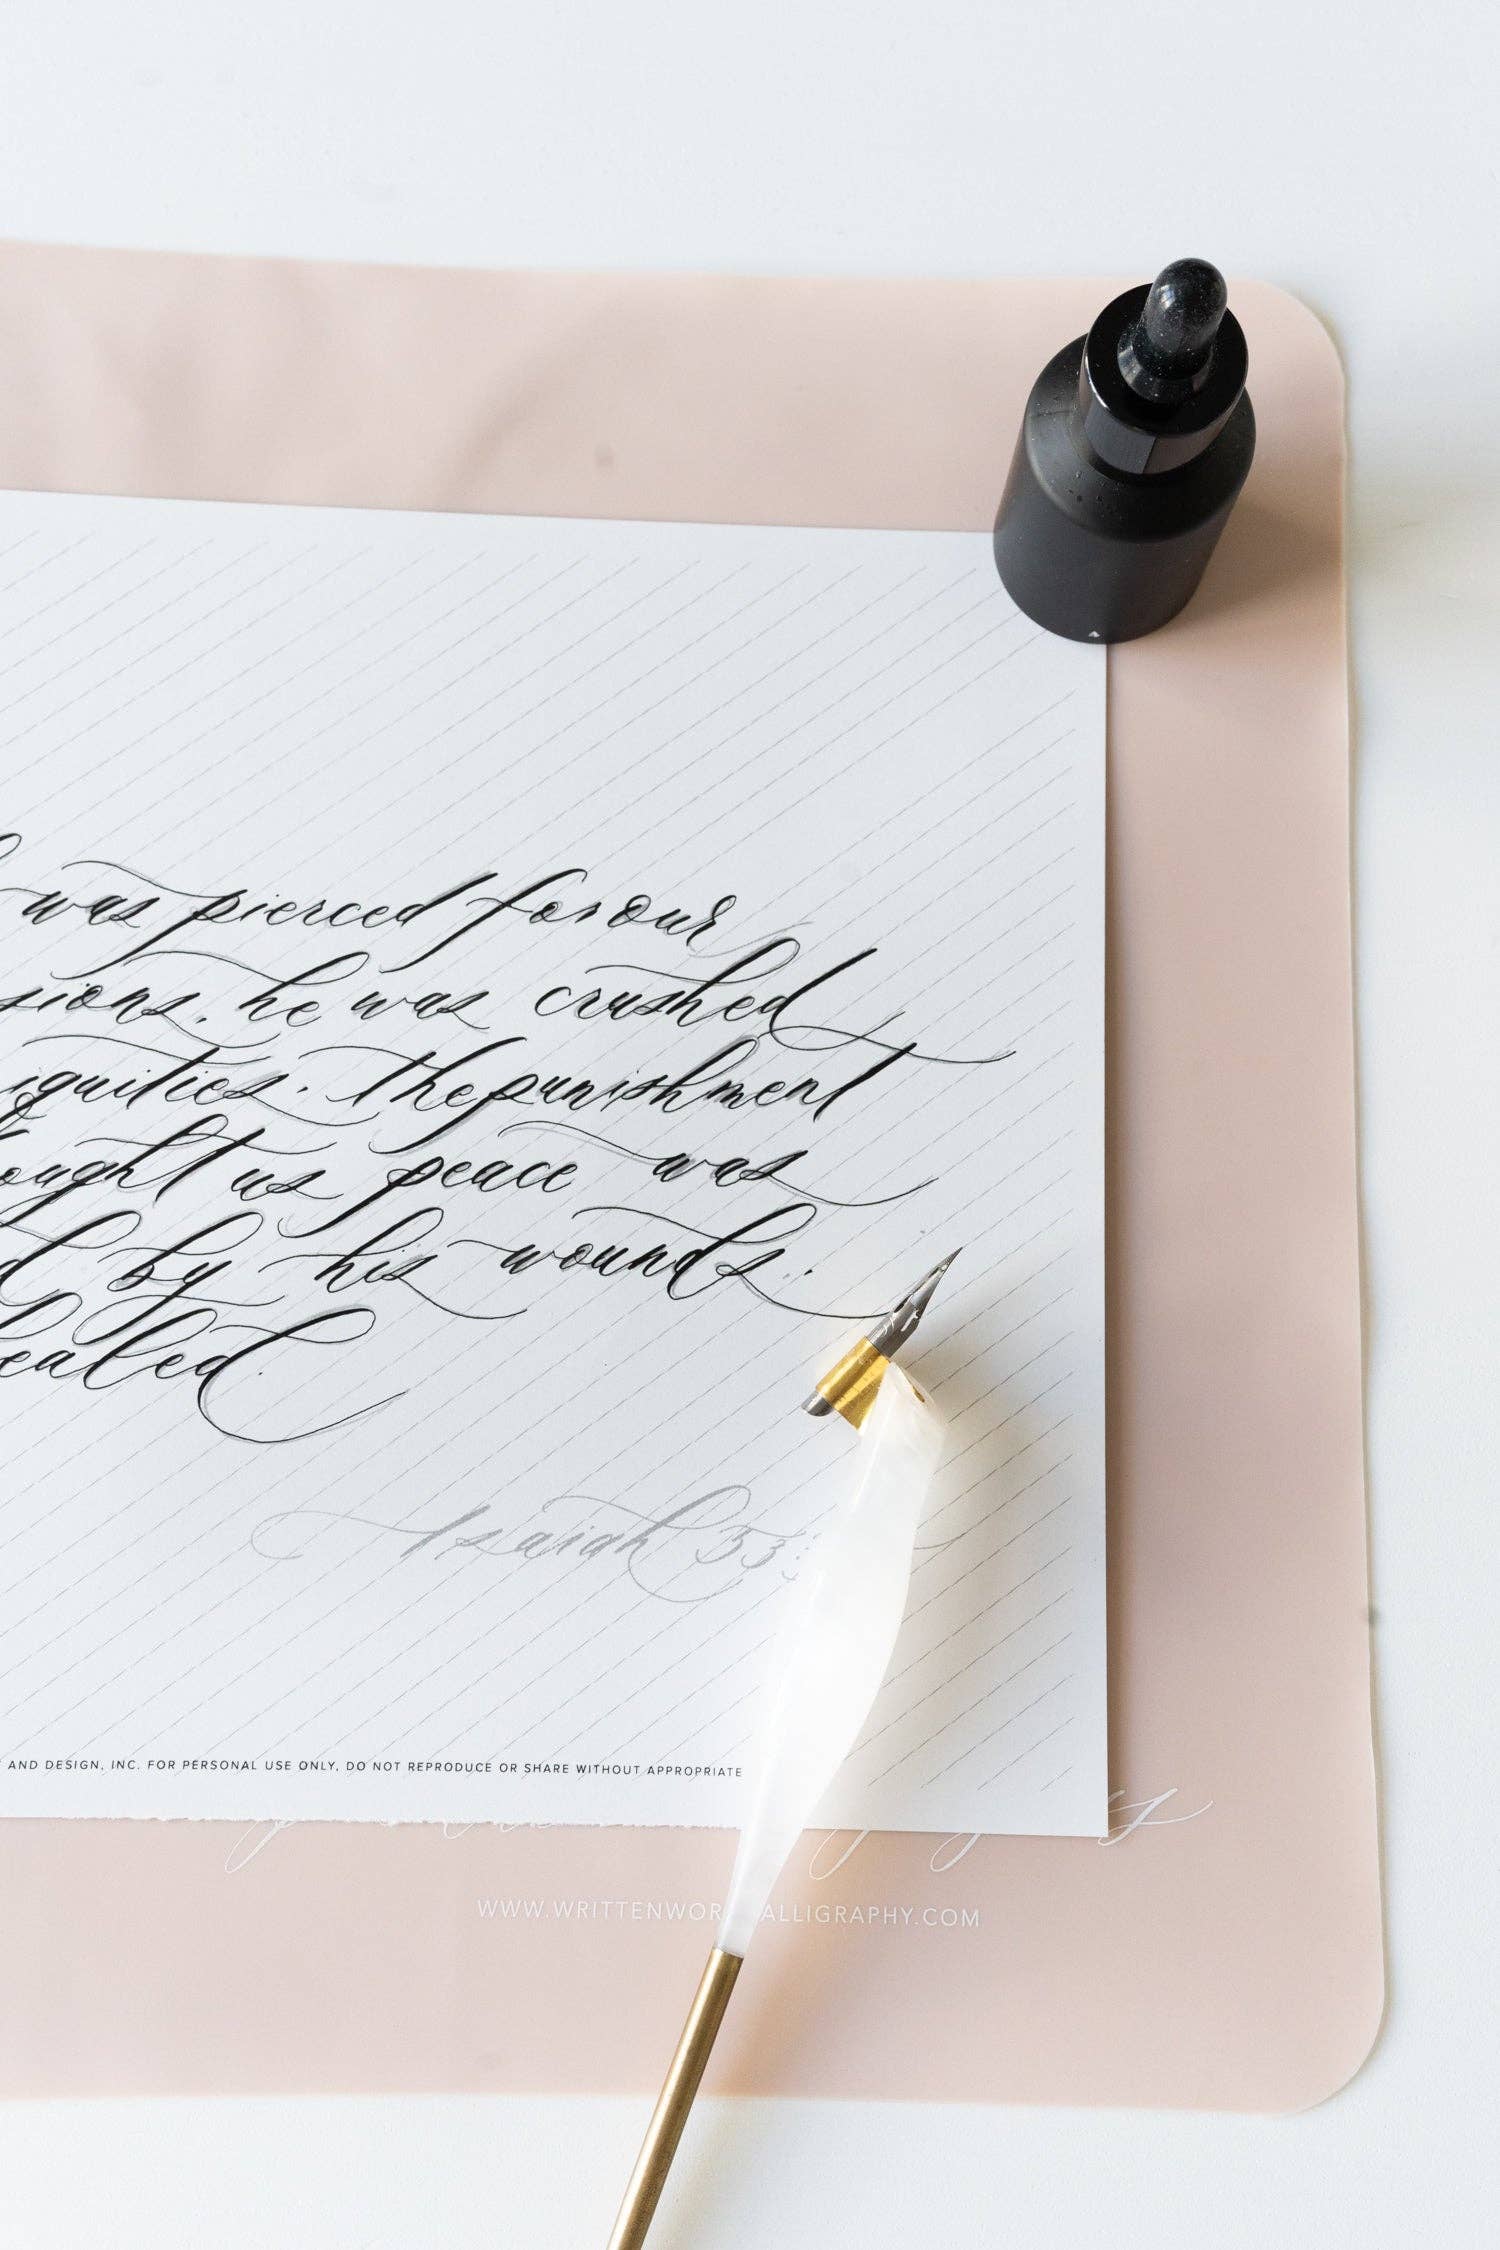 was pierced for our
sions, he was crushed
iquities. the punishment
ought us peace was
d by his wounds.
healed.
Isaiah 53:
AND DESIGN, INC. FOR PERSONAL USE ONLY, DO NOT REPRODUCE OR SHARE WITHOUT APPROPRIATE
WWW.WRITTENWOR ALLIGRAPHY.COM